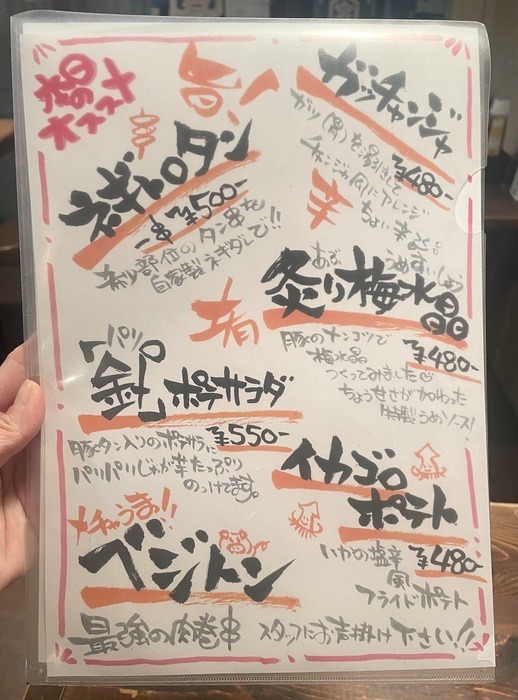 本日の
オススメ
旨い
ガッチャンジャ
ガツ(胃)を湯引きして
チャンジャ風にアレンジ
¥480-
ちょい辛よ。
辛
串
ネギ タン
一串¥500-
部位のタン串を
自家製ネギダレで!!
あぶ うめすいしょう
炙り梅水晶
豚のナンコツで
¥480-
梅水晶
つくってみました
ちょうせさが加わった
特製うめソース!
有
パリ
ポテサラダ
¥550-
豚タン入りのポテサラに
パリパリじゃが芋たっぷり
のっけてます。
イカゴロ
ポテト
いかの塩辛
¥480-
風
フライドポテト
メチャうま!!
ベジトン
最強の肉巻串 スタッフにお声掛け下さい!!